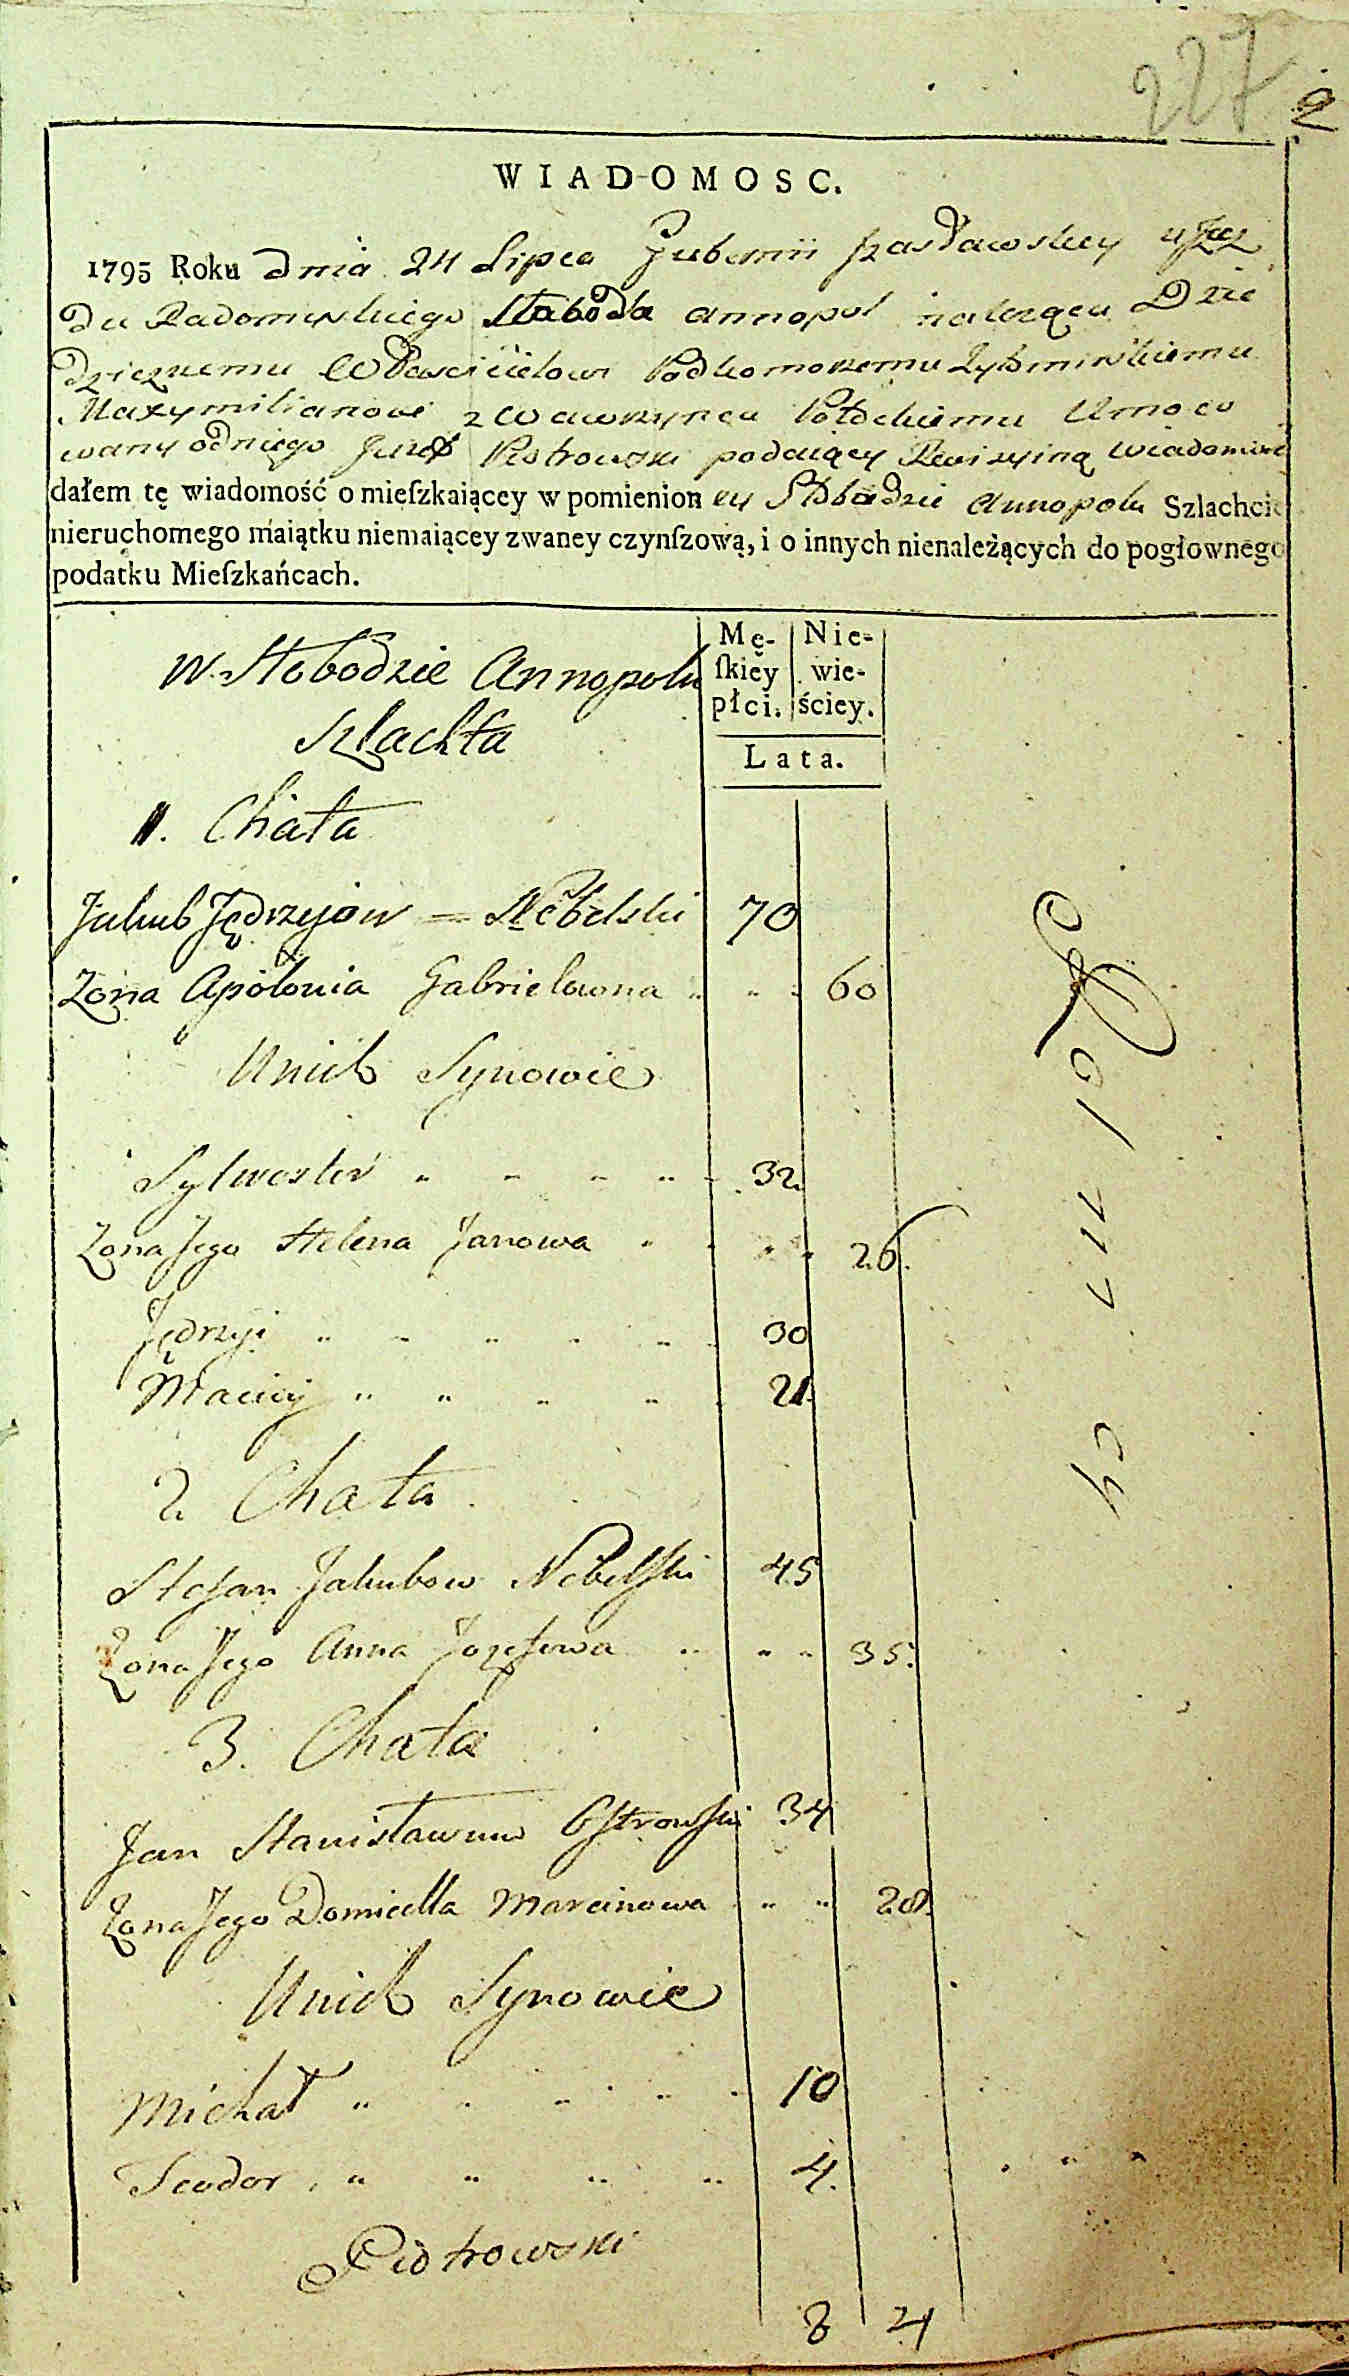 227
2
WIADOMOSC.
1795 Roku dnia 24 Lipca Gubernii Izasławskiey ujez
du Radomyskiego Słaboda Annopol należąca Dzie
dzicznemu Właścicielowi Podkomorzemu Żytomirskiemu
Maxymilianowi z Wawrzynca Umoco
wany od niego Jozef Piotrowski podaiący Rewizyiną wiadomość
dałem tę wiadomość o mieſzkaiącey w pomienioney Słobodzie Annopolu Szlachcie
nieruchomego maiątku niemaiącey zwaney czynſzową, i o innych nienależących do pogłownego
podatku Mieſzkańcach.
W Słobodzie Annopolu
Szlachta
Mę-
ſkiey
płci.
Nie-
wie-
ściey.
Lata.
1. Chata
Jakub Jędrzejow = Nebelski 70
Zona Apolonia Gabrielowna " " " 60
U nich Synowie
Sylwester " " " " " 32.
Zona Jego Helena Janowa " " " " 26.
Jędrzyi " " " " " " 30
Maciey " " " " " 21.
2. Chata
Stefan Jakubow Nebelſki 45
Zona Jego Anna Jozefowa " " " 35.
3. Chata
Jan Stanisławow Oſtrowſki 34
Zona Jego Domicella Marcinowa " " 28.
U nich Synowie
Michał " " " " " " 10
Teodor " " " " 4.
Piotrowski
8 4